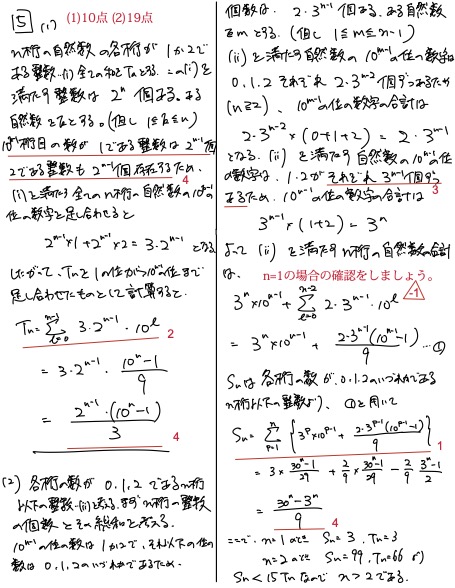 5 (1) (1)10点 (2)19点
n桁の自然数の各桁が1か2で
ある整数…(i) 全ての和をTnとする。この(i)を
満たす整数は 2^n 個ある。ある
自然数をkとする。(但し 1≦k≦n)
10^{k-1}桁目の数が 1である整数は 2^{n-1}個
2である整数も 2^{n-1}個存在するため、
4
(i)を満たす全てのn桁の自然数の10^{k-1}の
位の数字を足し合わせると
2^{n-1}×1+2^{n-1}×2=3・2^{n-1} となる
したがって、Tnを1の位から10^{n-1}の位まで
足し合わせたものとして計算すると、
Tn=Σ_{l=0}^{n-1} 3・2^{n-1}・10^l
2
= 3・2^{n-1}・(10^n-1)/9
= 2^{n-1}・(10^n-1)/3
4
(2) 各桁の数が 0,1,2 であるn桁
以下の整数…(ii)を考える。まずn桁の整数
の個数とその総和を考える。
10^{n-1}の位の数は1か2で、それ以下の位の
数は 0,1,2のいづれかであるため、
個数は、2・3^{n-1}個ある。ある自然数
をmとする。(但し 1≦m≦n-1)
(ii)を満たす自然数の 10^{m-1}の位の数字は
0,1,2 それぞれ 2・3^{n-2}個ずつあるため
(n≧2)、10^{m-1}の位の数字の合計は
2・3^{n-2}×(0+1+2) = 2・3^{n-1}
となる。(ii)を満たす自然数の10^{n-1}の位
の数字は、1,2がそれぞれ3^{n-1}個ずつ
3
あるため、10^{n-1}の位の数字の合計は
3^{n-1}×(1+2)=3^n
よって (ii)を満たすn桁の自然数の合計
は、 n=1の場合の確認をしましょう。
-1
3^n×10^{n-1}+Σ_{l=0}^{n-2} 2・3^{n-1}・10^l
= 3^n×10^{n-1}+ 2・3^{n-1}(10^{n-1}-1)/9 …①
Snは各桁の数が、0,1,2のいづれかである
n桁以下の整数より、①を用いて
Sn=Σ_{p=1}^{n} {3^p×10^{p-1}+ 2・3^{p-1}(10^{p-1}-1)/9}
1
= 3× (30^n-1)/29 + 2/9 × (30^n-1)/29 - 2/9 (3^n-1)/2
= (30^n-3^n)/9
4
ここで、n=1のとき Sn=3, Tn=3
n=2のとき Sn=99, Tn=66 より
Sn<15Tn なので n>2である。